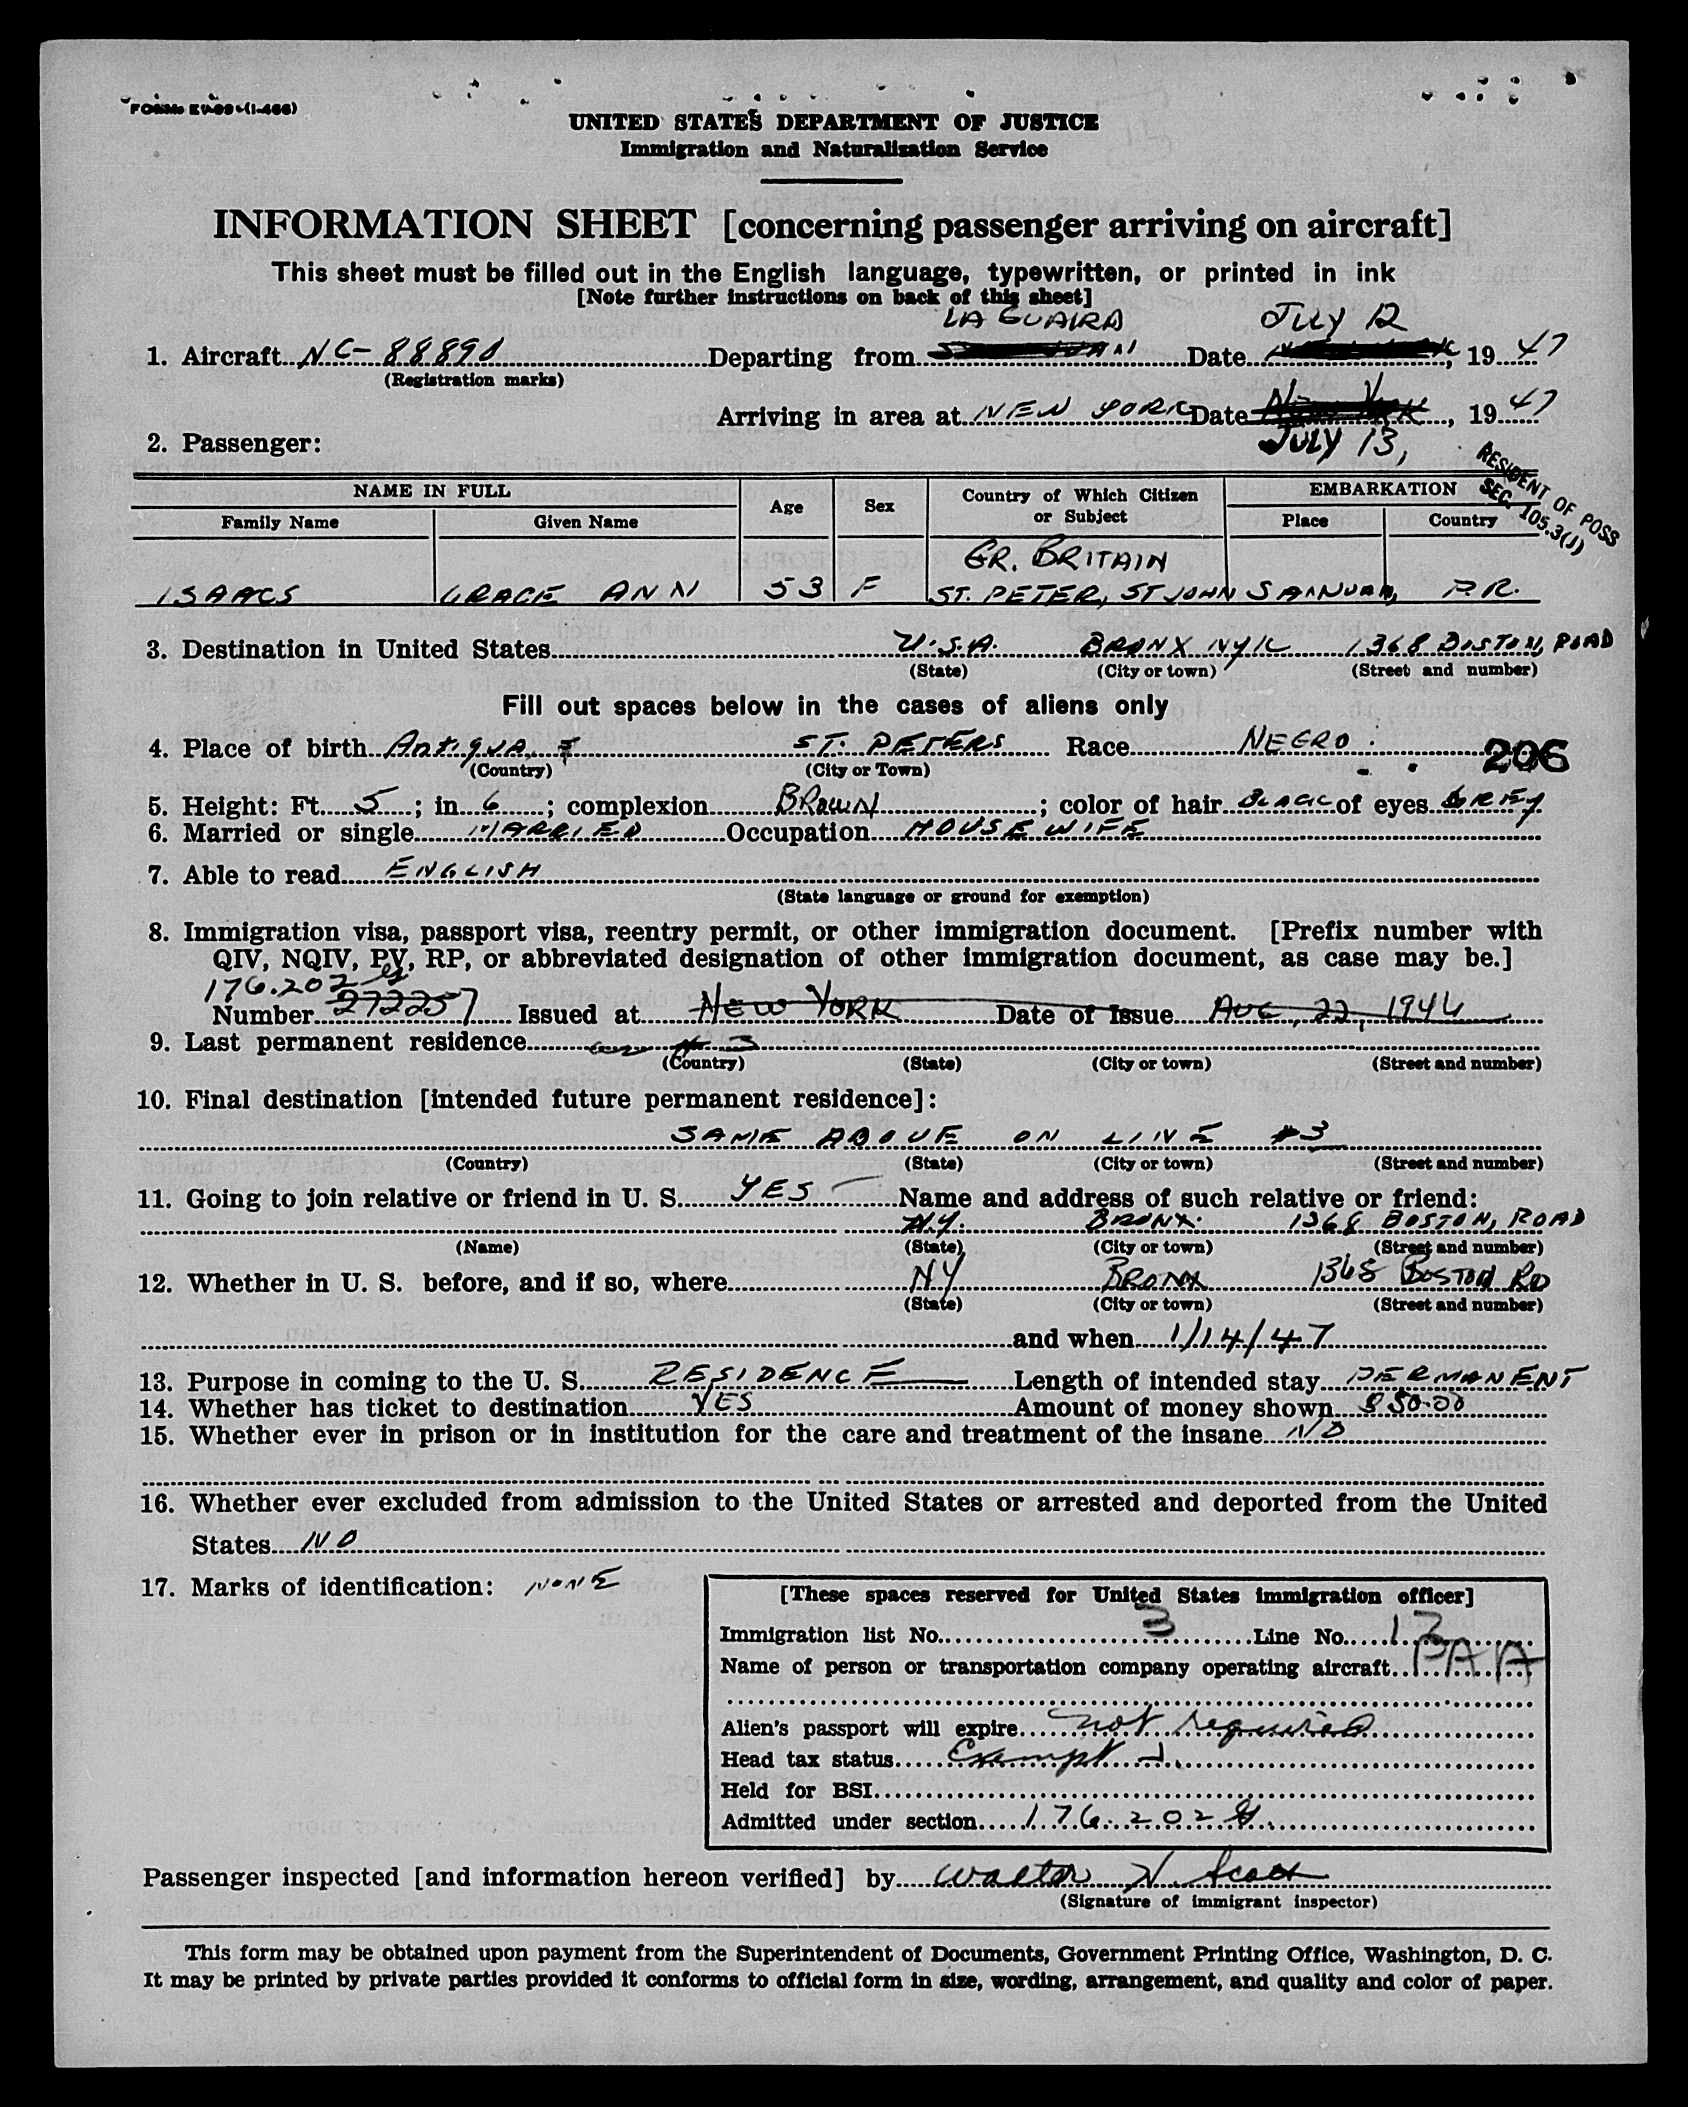 FORM I-466
UNITED STATES DEPARTMENT OF JUSTICE
Immigration and Naturalization Service
INFORMATION SHEET [concerning passenger arriving on aircraft]
This sheet must be filled out in the English language, typewritten, or printed in ink
[Note further instructions on back of this sheet]
LA GUAIRA July 12
1. Aircraft NC-88890 Departing from Date , 19 47
(Registration marks)
Arriving in area at NEW YORK Date New York, 19 47
2. Passenger: July 13,
RESIDENT OF POSS
SEC. 105.3(J)
NAME IN FULL Age Sex Country of Which Citizen or Subject EMBARKATION
Family Name Given Name Place Country
GR. BRITAIN
ISAACS GRACE ANN 53 F ST. PETER, ST JOHN SAN JUAN, P.R.
3. Destination in United States U.S.A. BRONX NYK 1368 BOSTON, ROAD
(State) (City or town) (Street and number)
Fill out spaces below in the cases of aliens only
4. Place of birth Antigua ST. PETERS Race NEGRO
(Country) (City or Town)
206
5. Height: Ft. 5; in. 6; complexion BROWN; color of hair BLACK of eyes GREY
6. Married or single MARRIED Occupation HOUSEWIFE
7. Able to read ENGLISH
(State language or ground for exemption)
8. Immigration visa, passport visa, reentry permit, or other immigration document. [Prefix number with
QIV, NQIV, PV, RP, or abbreviated designation of other immigration document, as case may be.]
176.202
Number 272257 Issued at NEW YORK Date of Issue AUG, 22, 1946
9. Last permanent residence # 3
(Country) (State) (City or town) (Street and number)
10. Final destination [intended future permanent residence]:
SAME ABOVE ON LINE #3
(Country) (State) (City or town) (Street and number)
11. Going to join relative or friend in U. S. YES Name and address of such relative or friend:
N.Y. BRONX. 1368 BOSTON, ROAD
(Name) (State) (City or town) (Street and number)
12. Whether in U. S. before, and if so, where NY BRONX 1368 BOSTON RD
(State) (City or town) (Street and number)
and when 1/14/47
13. Purpose in coming to the U. S. RESIDENCE Length of intended stay PERMANENT
14. Whether has ticket to destination YES Amount of money shown $50.00
15. Whether ever in prison or in institution for the care and treatment of the insane NO
16. Whether ever excluded from admission to the United States or arrested and deported from the United
States NO
17. Marks of identification: NONE
[These spaces reserved for United States immigration officer]
Immigration list No. 3 Line No. 12
Name of person or transportation company operating aircraft PAA
Alien's passport will expire not required
Head tax status Exempt
Held for BSI
Admitted under section 176.202
Passenger inspected [and information hereon verified] by Walter H. Scott
(Signature of immigrant inspector)
This form may be obtained upon payment from the Superintendent of Documents, Government Printing Office, Washington, D. C.
It may be printed by private parties provided it conforms to official form in size, wording, arrangement, and quality and color of paper.